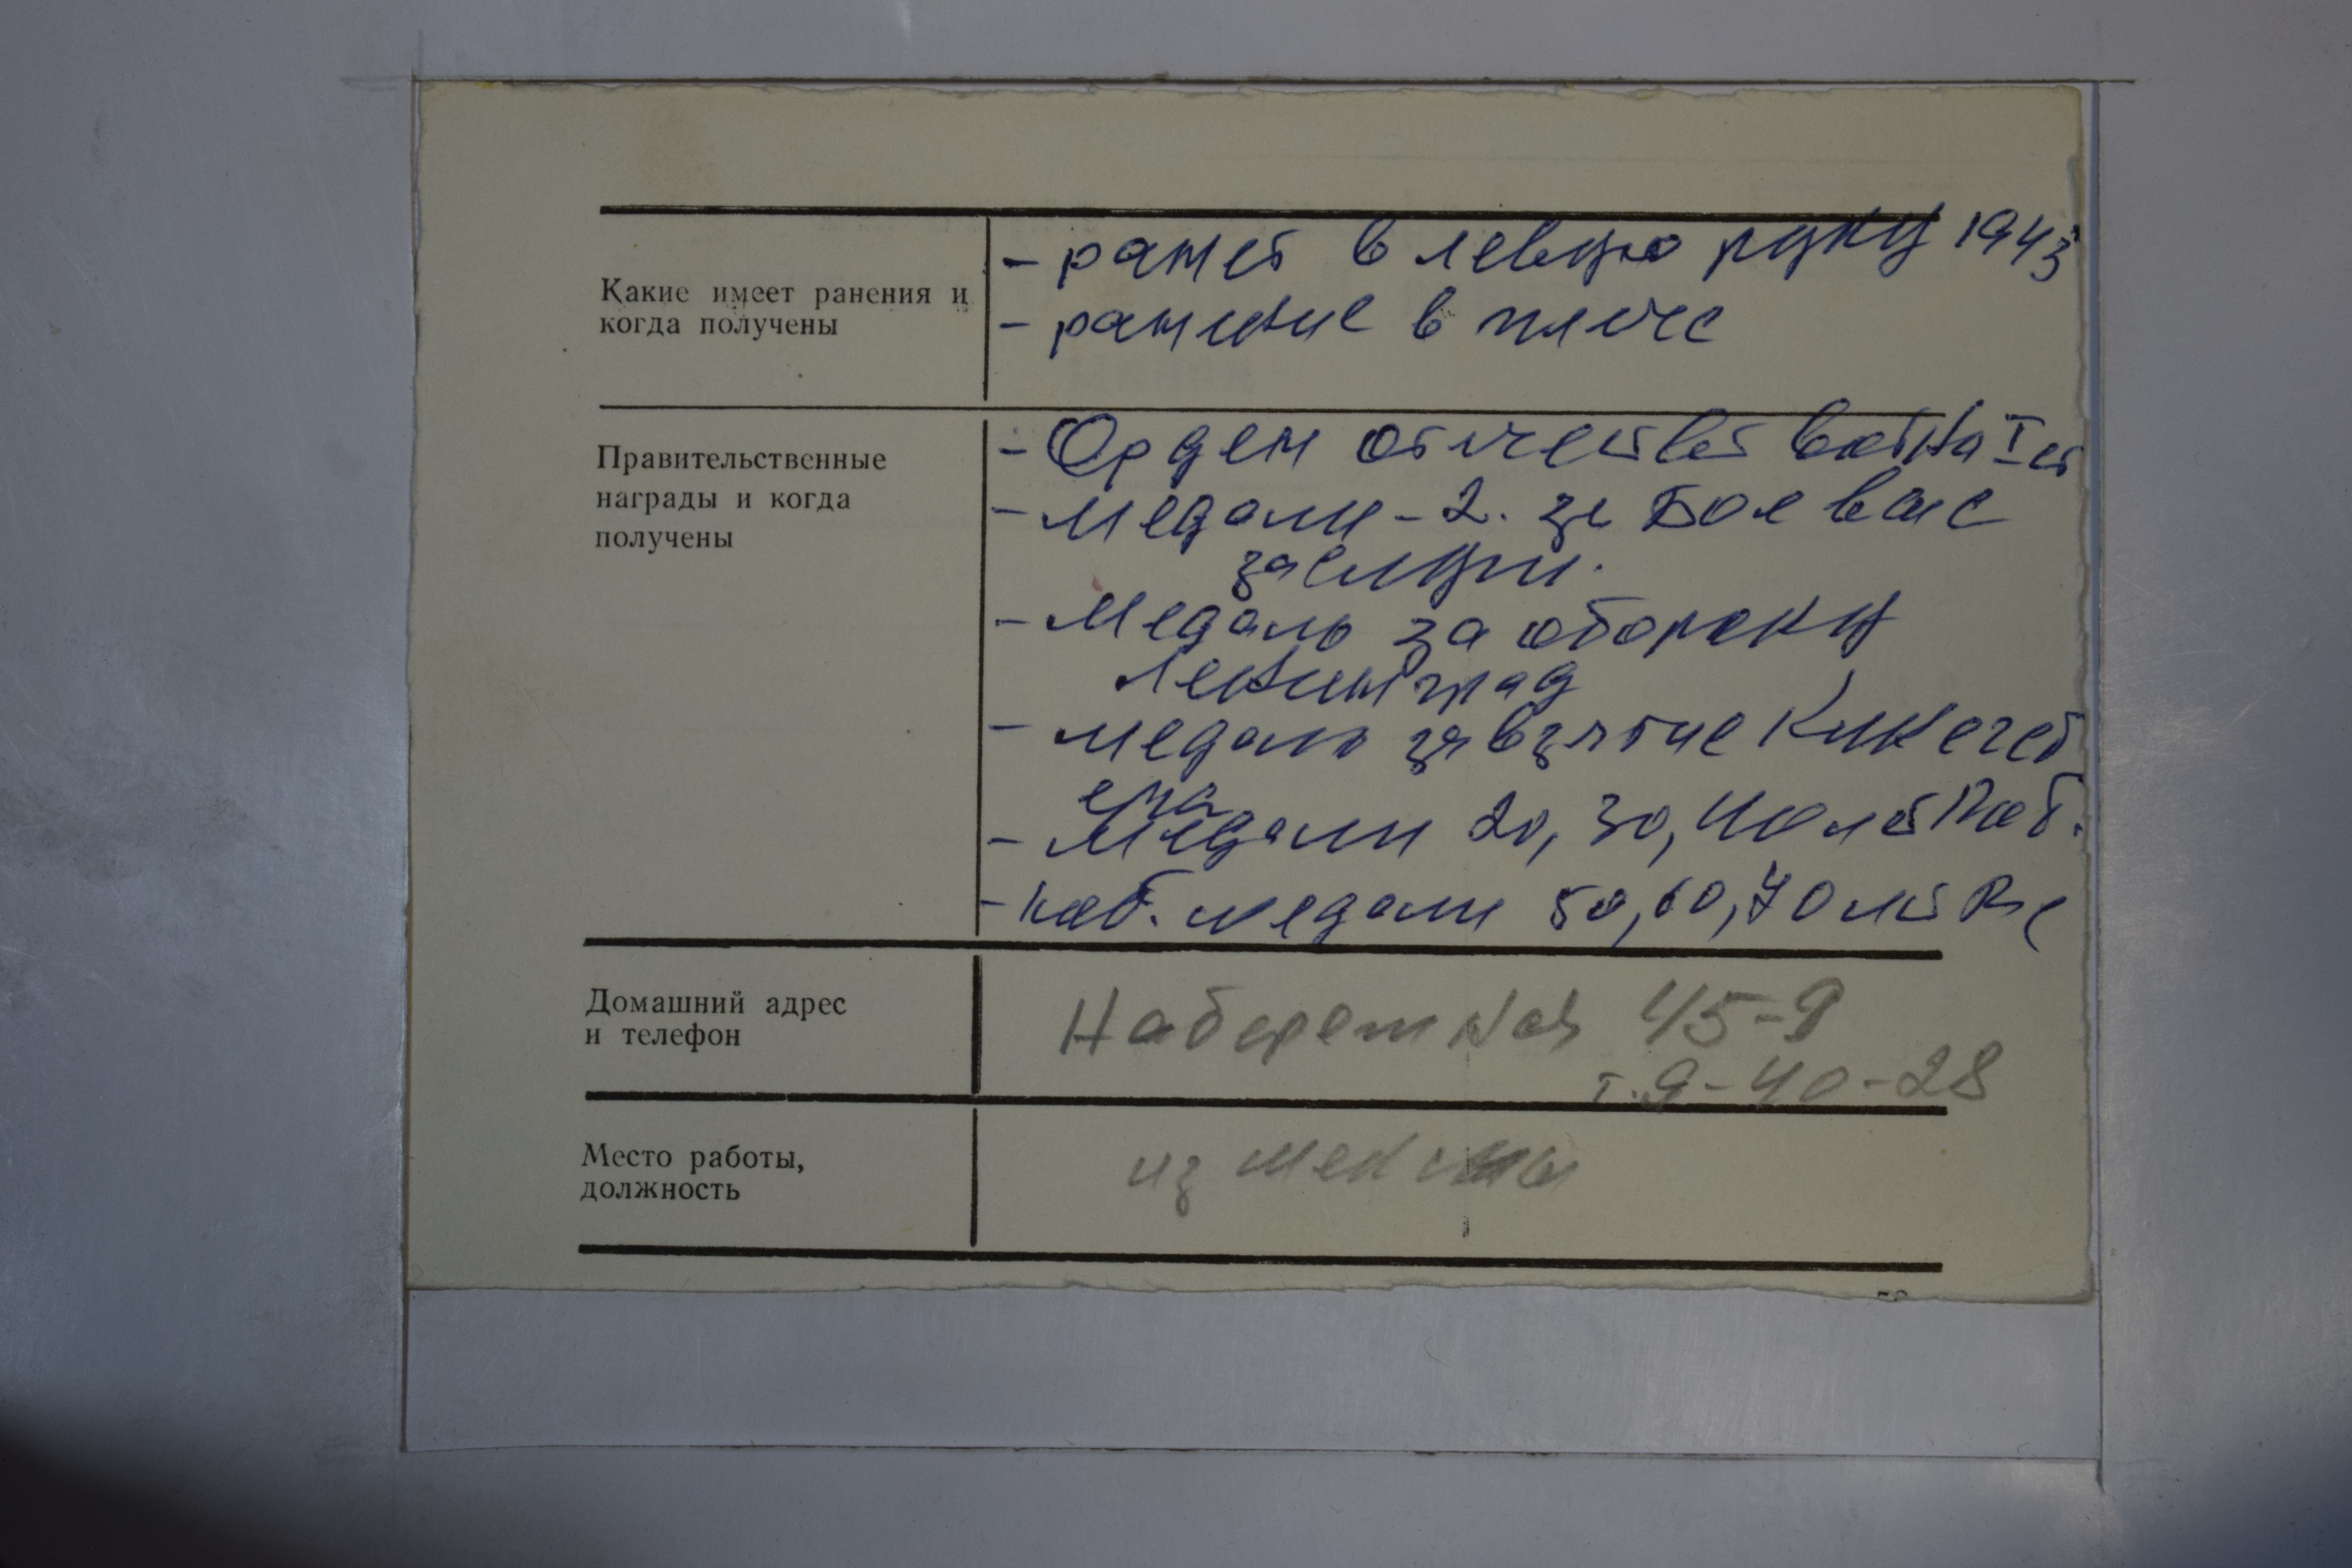 Какие имеет ранения и
когда получены
- ранет в левую руку 1943
- ранение в плече
Правительственные
награды и когда
получены
- Орден отечеств войны I ст
- медали - 2. за Боевые
заслуги.
- Медаль за оборону
Ленинград
- медаль за взятие
- Медали 20, 30, 40 лет Поб.
- юб. медали 50, 60, 70 лет ВС
Домашний адрес
и телефон
Набережная 45-9
т. 9-40-28
Место работы,
должность
из